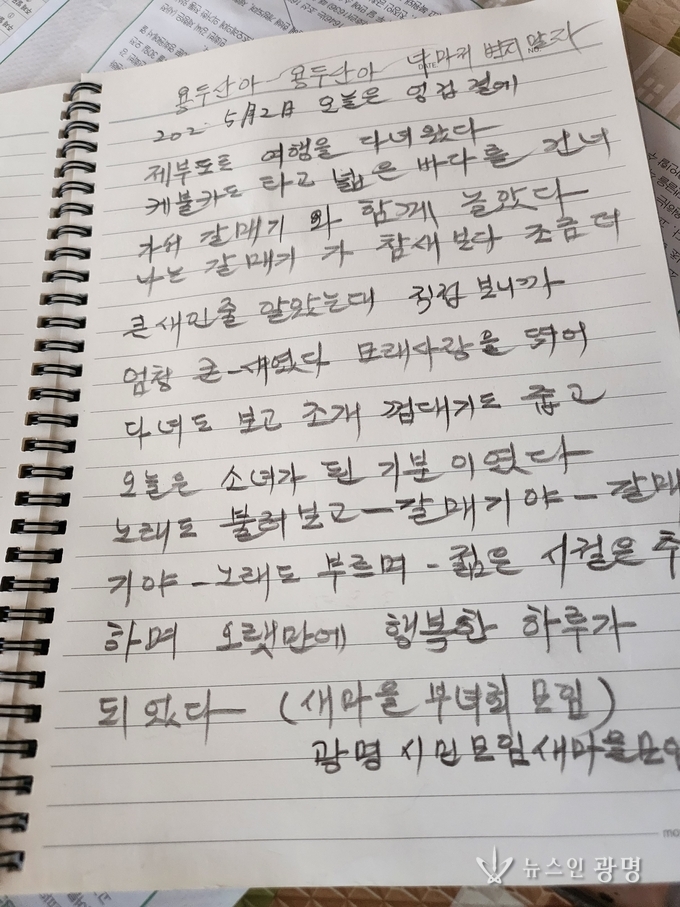 용두산아 용두산아 너마저 변치 말자
DATE NO.
202 5月2日 오늘은 엉겁결에
제부도로 여행을 다녀왔다
케불카도 타고 넓은 바다를 건너
가서 갈매기 와 함께 놀았다
나는 갈매기 가 참새보다 조금더
큰새인줄 알았는데 직접 보니가
엄청 큰-새였다 모래사랑을 뛰어
다녀도 보고 조개 껍대기도 줍고
오늘은 소녀가 된 기분이였다
노래도 불러보고-갈매기야-갈매
기야-노래도 부르며-젊은 시절은 추
하며 오랫만에 행복한 하루가
되었다- (새마을 부녀회 모임)
광명 시민모임새마을모임
뉴스인 광명